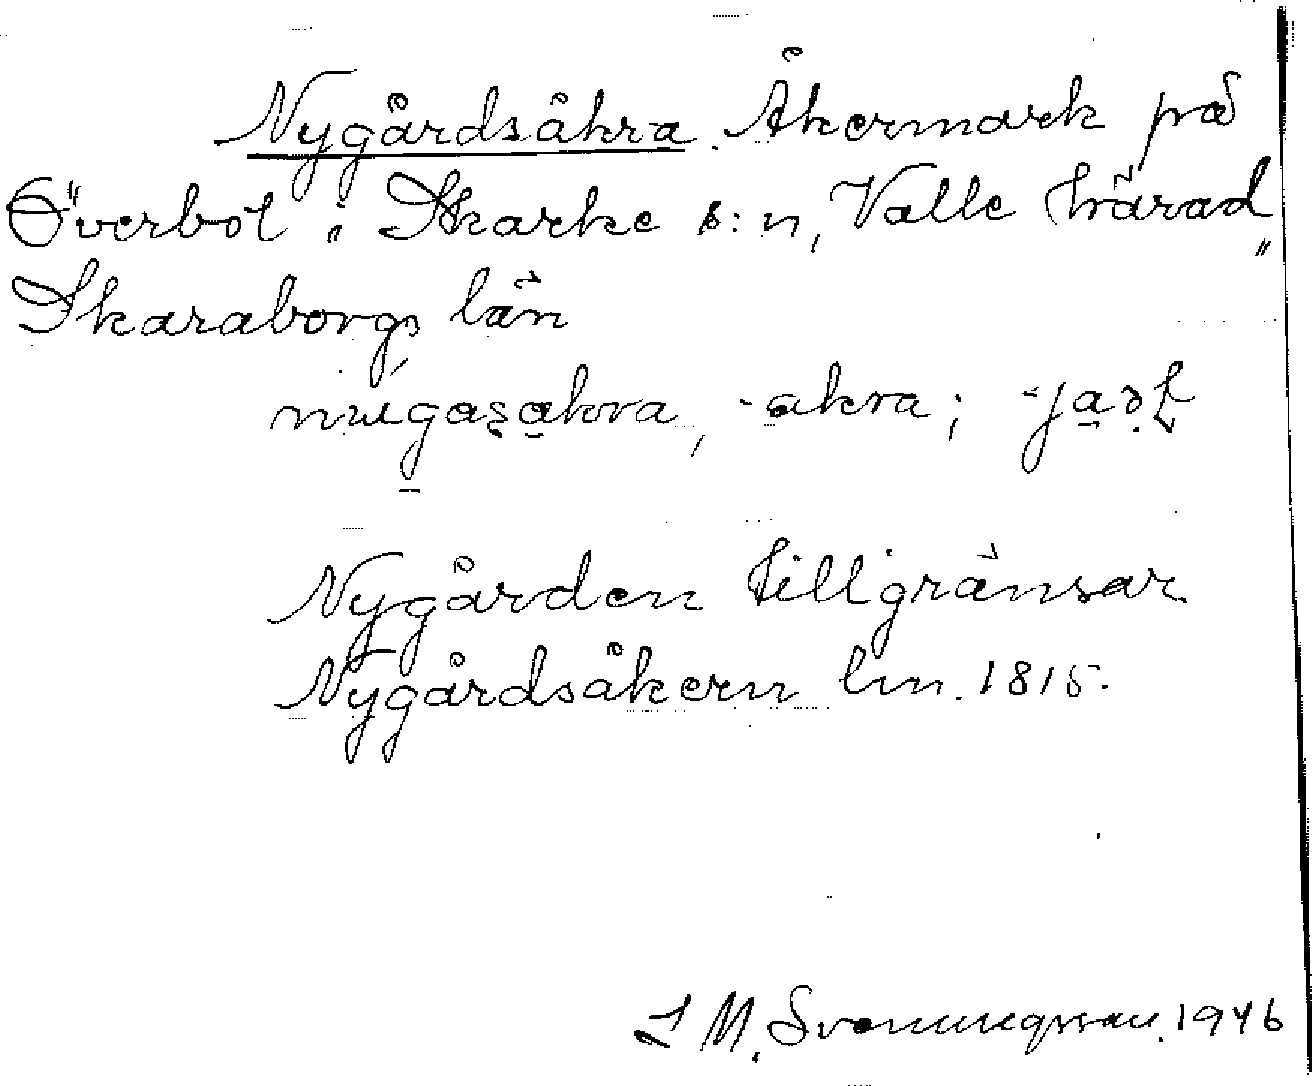 Nygårdsåkra. Åkermark på
Överbol i Skarke s:n, Valle härad,
Skaraborgs län
nygasakra, -akra;
Nygården tillgränsar
Nygårdsåkern lm. 1815.
J M. Svenungsson. 1946